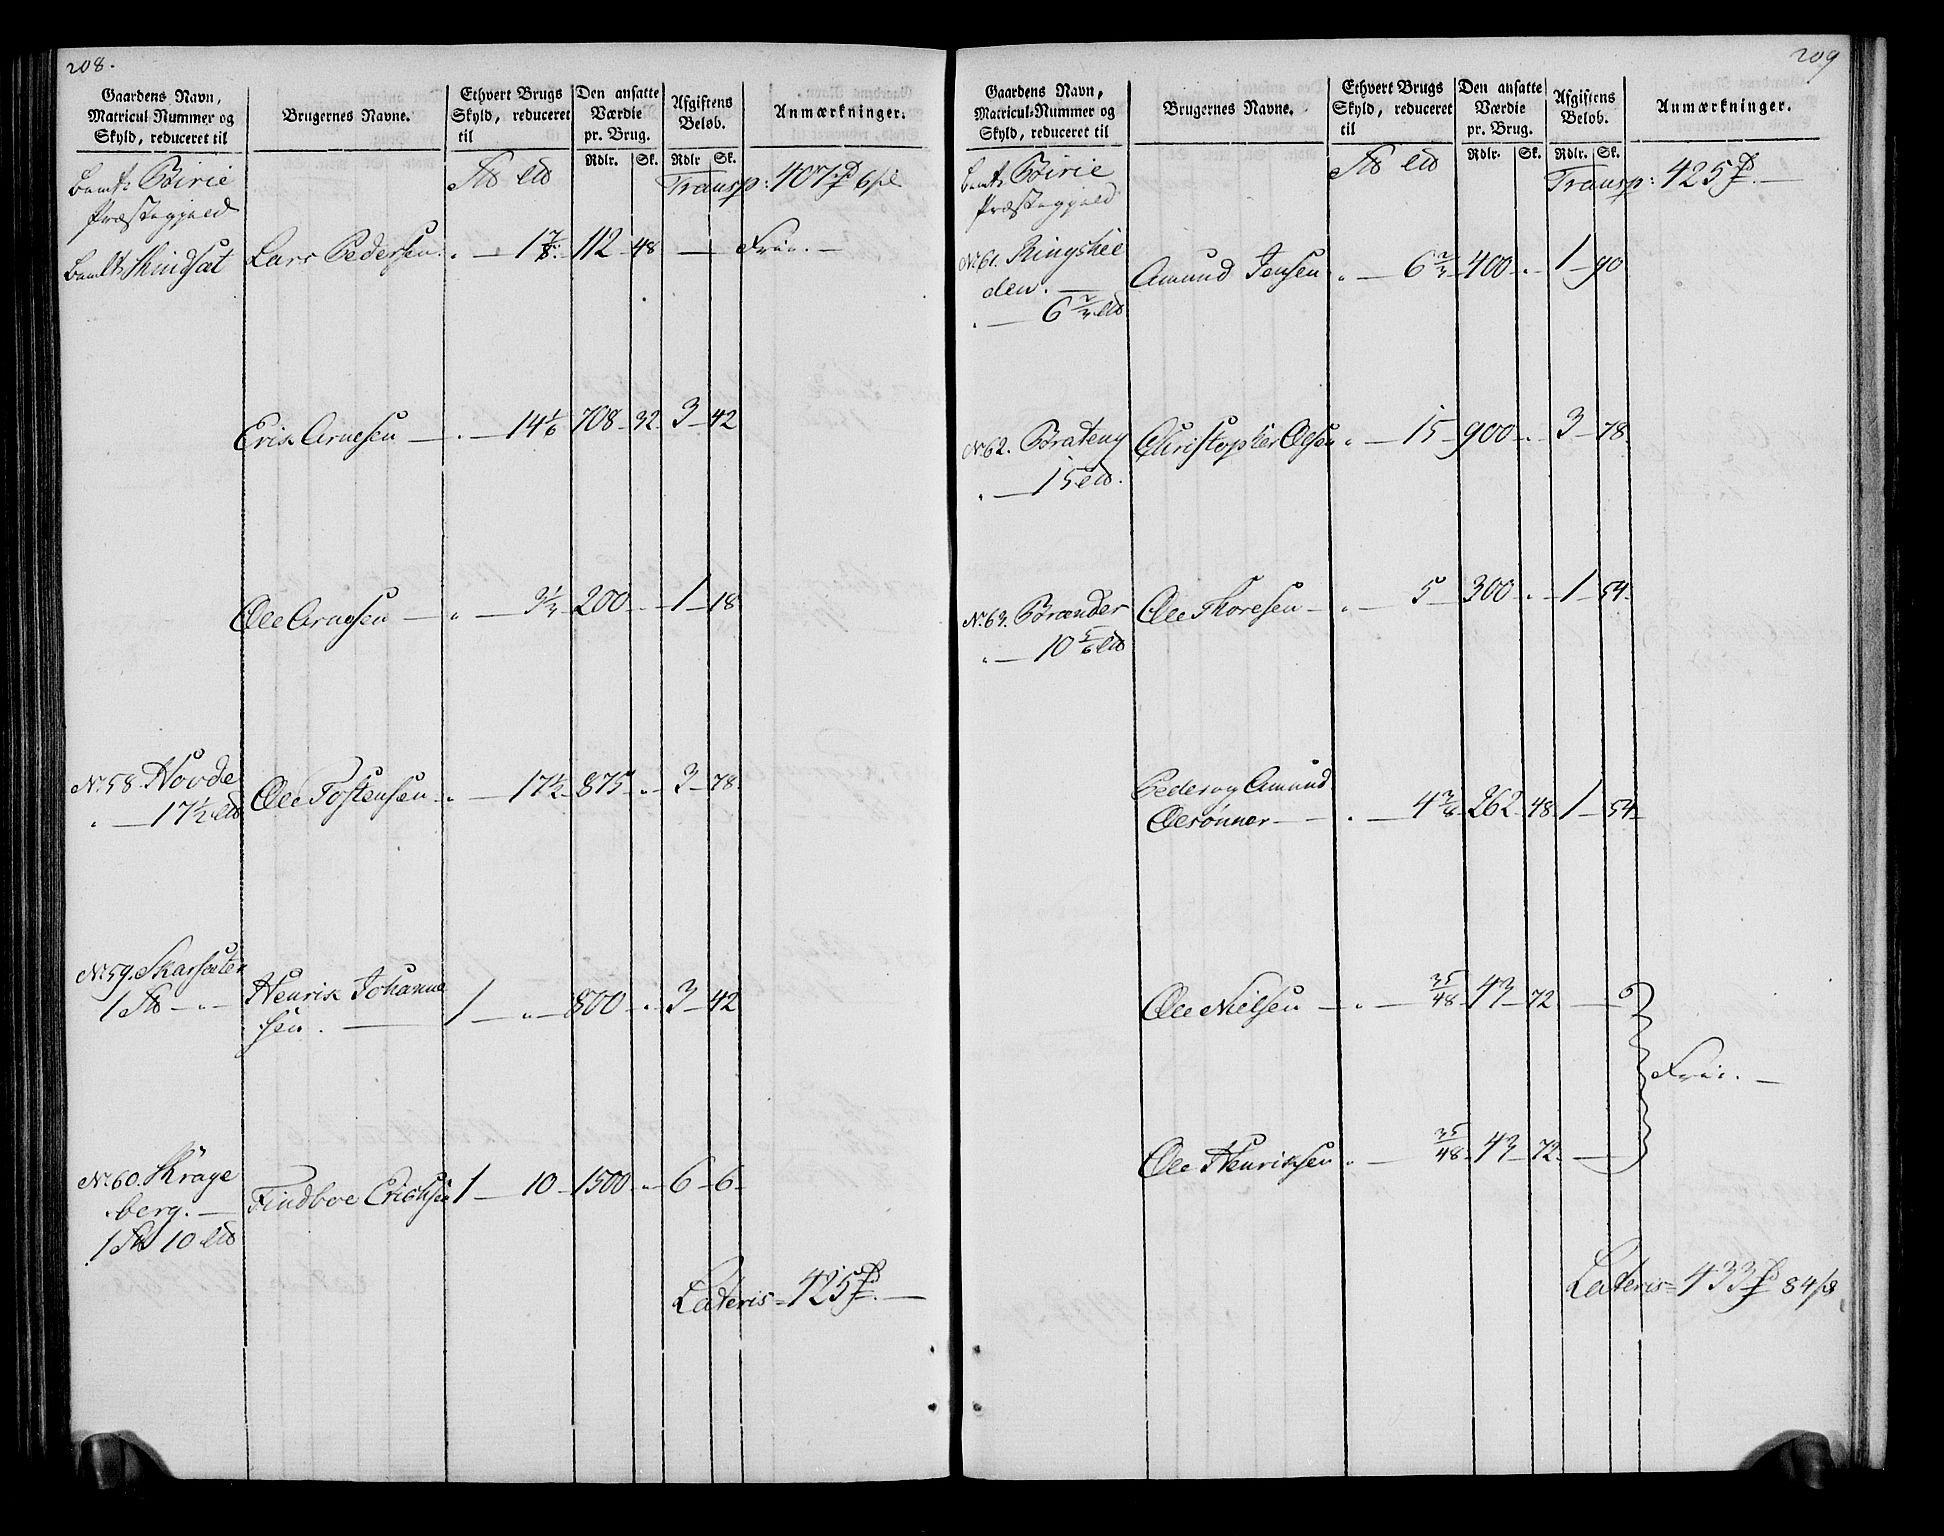 208.
Gaardens Navn,
Matricul-Nummer og
Skyld, reduceret til
Brugernes Navne.
Ethvert Brugs
Skyld, reduceret
til
Den ansatte
Værdie
pr. Brug.
Afgiftens
Beløb.
Anmærkninger.
Rdlr. Sk. Rdlr Sk.
bemt: Birie
Præstegjeld
Transp: 407 6
Lars Pedersen 1 7/8 112 48 — Frie. —
Erik Arnesen — . — 14 1/6 708 32 3 42
Ole Arnesen — " — 3 1/3 200 - - 1 18
No. 58 Hovde Ole Tostensen - . — 17 1/2 875 - . - 3 78
" — 17 1/2
No. 59. Skarsæter
1 — " — Henrik Johanne
sen . — 1 — " — 800 - . - 3 42
No. 60. Krage
berg. — Findboe Eriksen 1 — 10 1500 - " - 6 6
1 10
Lateris = 425 —
209
Gaardens Navn,
Matricul-Nummer og
Skyld, reduceret til
Brugernes Navne.
Ethvert Brugs
Skyld, reduceret
til
Den ansatte
Værdie
pr. Brug.
Afgiftens
Beløb.
Anmærkninger.
Rdlr. Sk. Rdlr. Sk.
bemt: Birie
Præstegjeld
Transp: 425 —
No. 61. Ringshie
den. — Amund Jensen " — 6 2/3 400 - . - 1 90
. — 6 2/3
No. 62. Brateng Christopher Olsen " — 15 900 - . - 3 78
. — 15
No. 63. Brænder Ole Thoresen — " — 5 300 - . - 1 54
" — 10 5/6
Peder og Amund
Olesønner — . — 4 3/8 262 48 1 54
Ole Nielsen — " — 35/48 43 72 —
Frie. —
Ole Henriksen " — 35/48 43 72 —
Lateris = 433 84